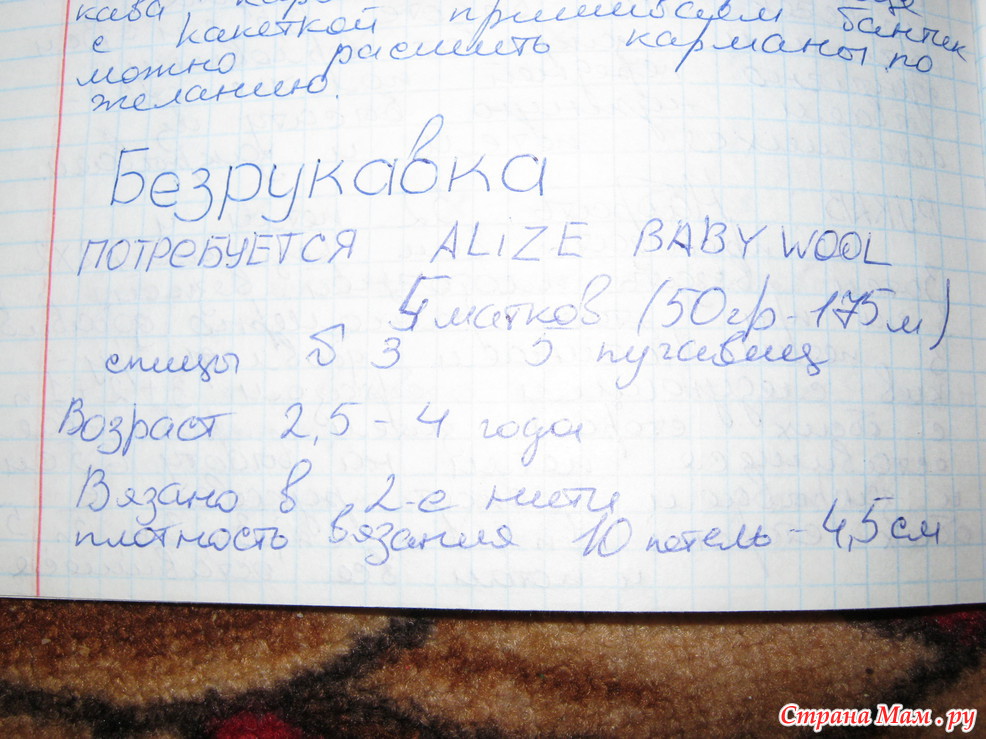 кава
с какеткой пришиваем бантик
можно расшить карманы по
желанию.
Безрукавка
ПОТРЕБУЕТСЯ ALIZE BABY WOOL
матков (50гр - 175м)
спицы б 3 5 пугавиц
Возраст 2,5 - 4 года
Вязано в 2-е нити
плотность вязания 10 петель - 4,5 см
Страна Мам.ру